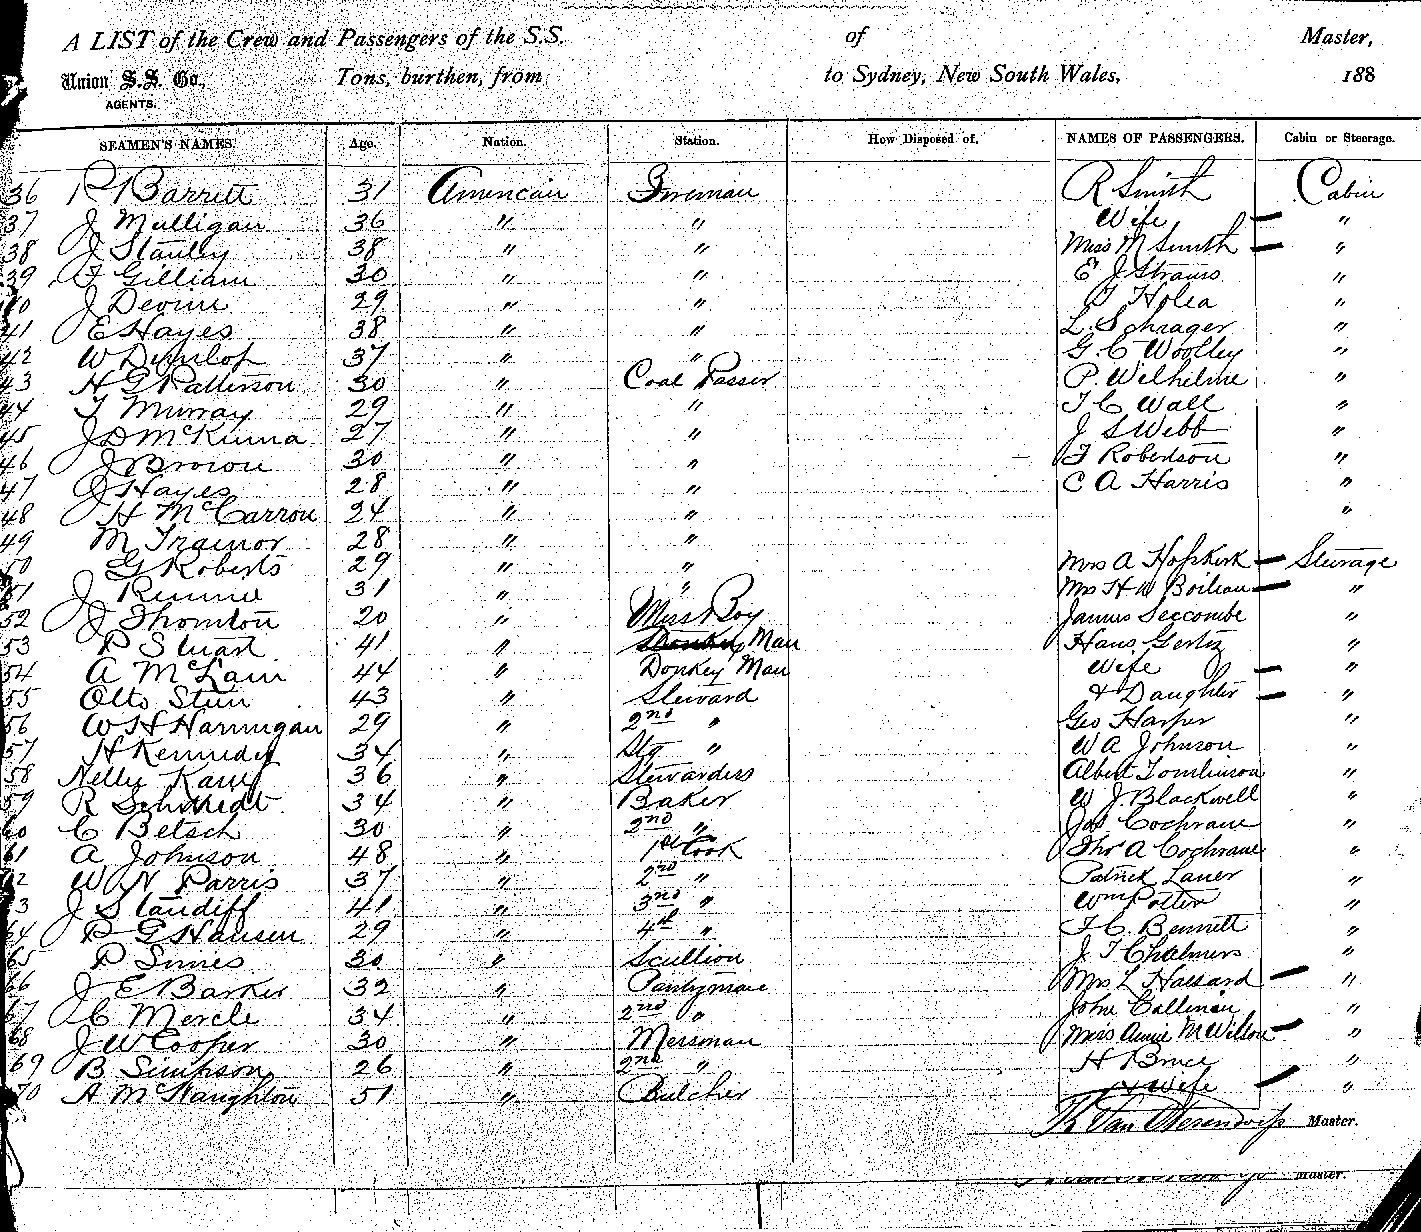 A LIST of the Crew and Passengers of the S.S. of Master,
Union S.S. Co., Tons, burthen, from to Sydney, New South Wales, 188
AGENTS.
SEAMEN'S NAMES. Age. Nation. Station. How Disposed of. NAMES OF PASSENGERS. Cabin or Steerage.
36 P Barrett 31 American Fireman R Smith Cabin
37 J Mulligan 36 " " Wife — "
38 J Stanley 38 " " Miss M Smith — "
39 F Gilliam 30 " " E J Strauss "
40 J Devine 29 " " Holea "
41 E Hayes 38 " " L. Schrager "
42 W Dunlop 37 " " G. C Woolley "
43 H G Patterson 30 " Coal Passer P. Wilhelme "
44 T Murray 29 " " F C Wall "
45 J D McKinna 27 " " J S Webb "
46 J Brown 30 " " F Robertson "
47 J Hayes 28 " " C A Harris "
48 H McCarron 24 " " "
49 M Trainor 28 " "
50 G Roberts 29 " " Mrs A Hopkirk — Steerage
51 J Rennie 31 " " Mrs H W Boileau — "
52 J Thornton 20 " Mess Boy James Seccombe "
53 P Stuart 41 " Donkey Man Hans Gertz "
54 A McLain 44 " Donkey Man Wife — "
55 Otto Stein 43 " Steward & Daughter — "
56 W H Harrigan 29 " 2nd " Geo Harper "
57 H Kennedy 34 " Stg " W A Johnson "
58 Nellie Kane 36 " Stewardess Albert Tomlinson "
59 R Schmedt 34 " Baker W J. Blackwell "
60 C Betsch 30 " 2nd " Jas Cochrane "
61 A Johnson 48 " 1st Cook Thos A Cochrane "
62 W N Parris 37 " 2nd " Patrick Laner "
63 J Standiff 41 " 3rd " Wm Potter "
64 P G Hansen 29 " 4th " F C. Bennett "
65 P Simes 30 " Scullion J. T Chalmers "
66 J E Barker 32 " Pantryman Mrs L Hassard — "
67 C Mercle 34 " 2nd " John Calliman "
68 J W Cooper 30 " Messman Miss Annie M Wilson — "
69 B Simpson 26 " 2nd " H Bruce "
70 A McNaughton 51 " Butcher & Wife — "
Master.
Master.